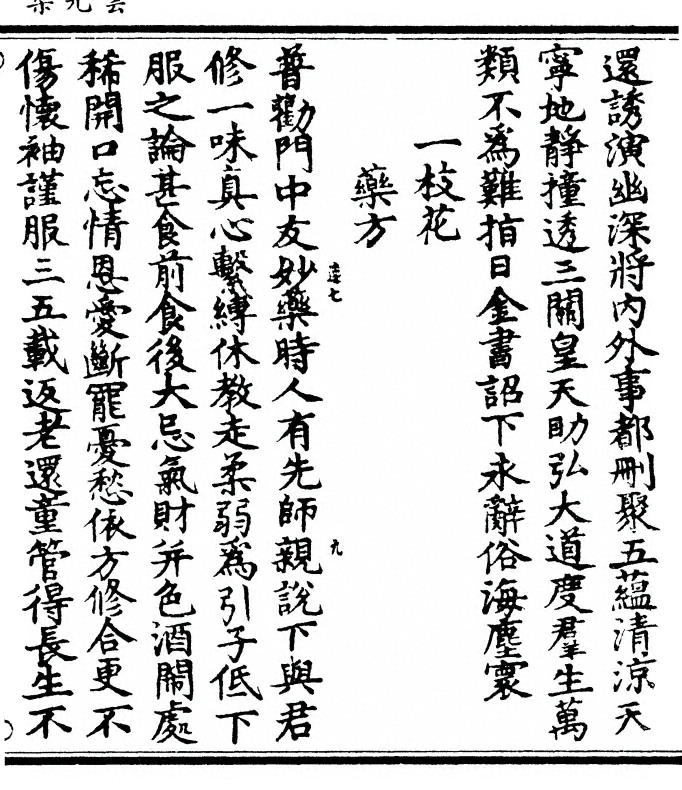 還誘演幽深將内外事都刪聚五蘊清涼天
寧地靜撞透三關皇天助弘大道度羣生萬
類不為難指日金書詔下永辭俗海塵寰
一枝花
藥方
普勸門中友妙藥時人有先師親說下與君
修一味真心繫縛休教走柔弱為引子低下
服之論甚食前食後大忌氣財并色酒鬧處
稀開口忘情恩愛斷罷憂愁依方修合更不
傷懷袖謹服三五載返老還童管得長生不